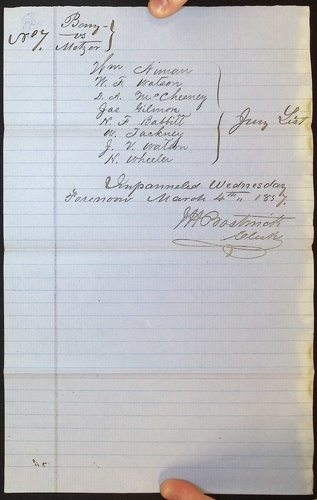 No 7. Bony
vs
Metzor
Wm Niman
W. F. Watson
D. A. McCheeney
Jas Gilmon
N. F. Babbitt
W. Tackney
J. V. Watson
N. Wheeler
Jury List
Impanneled Wednesday
Forenoon March 4th 1857.
J H Bostwick
Clerk